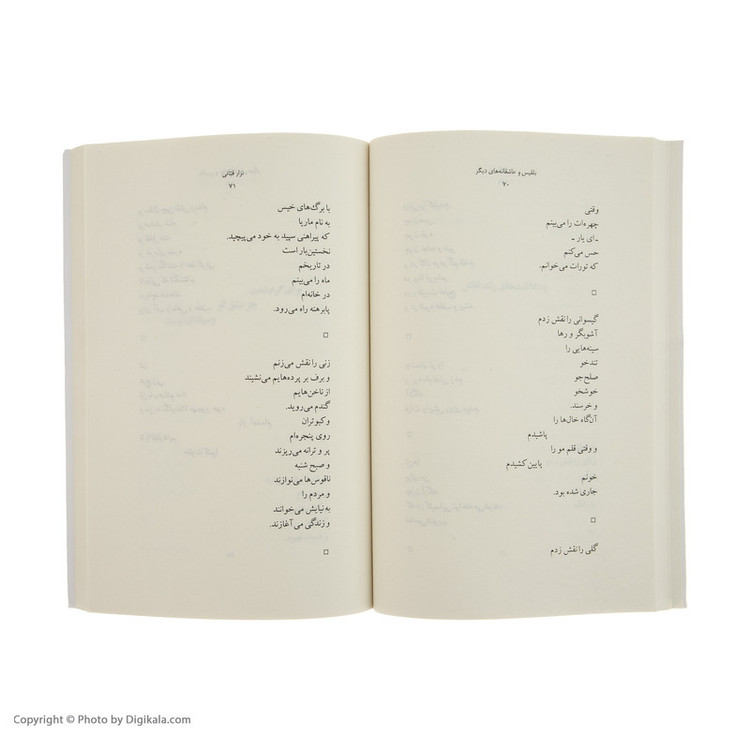 بلقیس و عاشقانه‌های دیگر
۷۰
وقتی
چهره‌ات را می‌بینم
ـ ای یار ـ
حس می‌کنم
که تورات می‌خوانم.
گیسوانی را نقش زدم
آشوبگر و رها
سینه‌هایی را
تندخو
صلح‌جو
خوشخو
و خرسند.
آن‌گاه خال‌ها را
پاشیدم
و وقتی قلم مو را
پایین کشیدم
خونم
جاری شده بود.
گلی را نقش زدم
نزار قبّانی
۷۱
با برگ‌های خیس
به نام ماریا
که پیراهنی سپید به خود می‌پیچید.
نخستین‌بار است
در تاریخم
ماه را می‌بینم
در خانه‌ام
پابرهنه راه می‌رود.
زنی را نقش می‌زنم
و برف بر پرده‌هایم می‌نشیند
از ناخن‌هایم
گندم می‌روید.
و کبوتران
روی پنجره‌ام
پر و ترانه می‌ریزند
و صبح شنبه
ناقوس‌ها می‌نوازند
و مردم را
به نیایش می‌خوانند
و زندگی می آغازند.
Copyright © Photo by Digikala.com